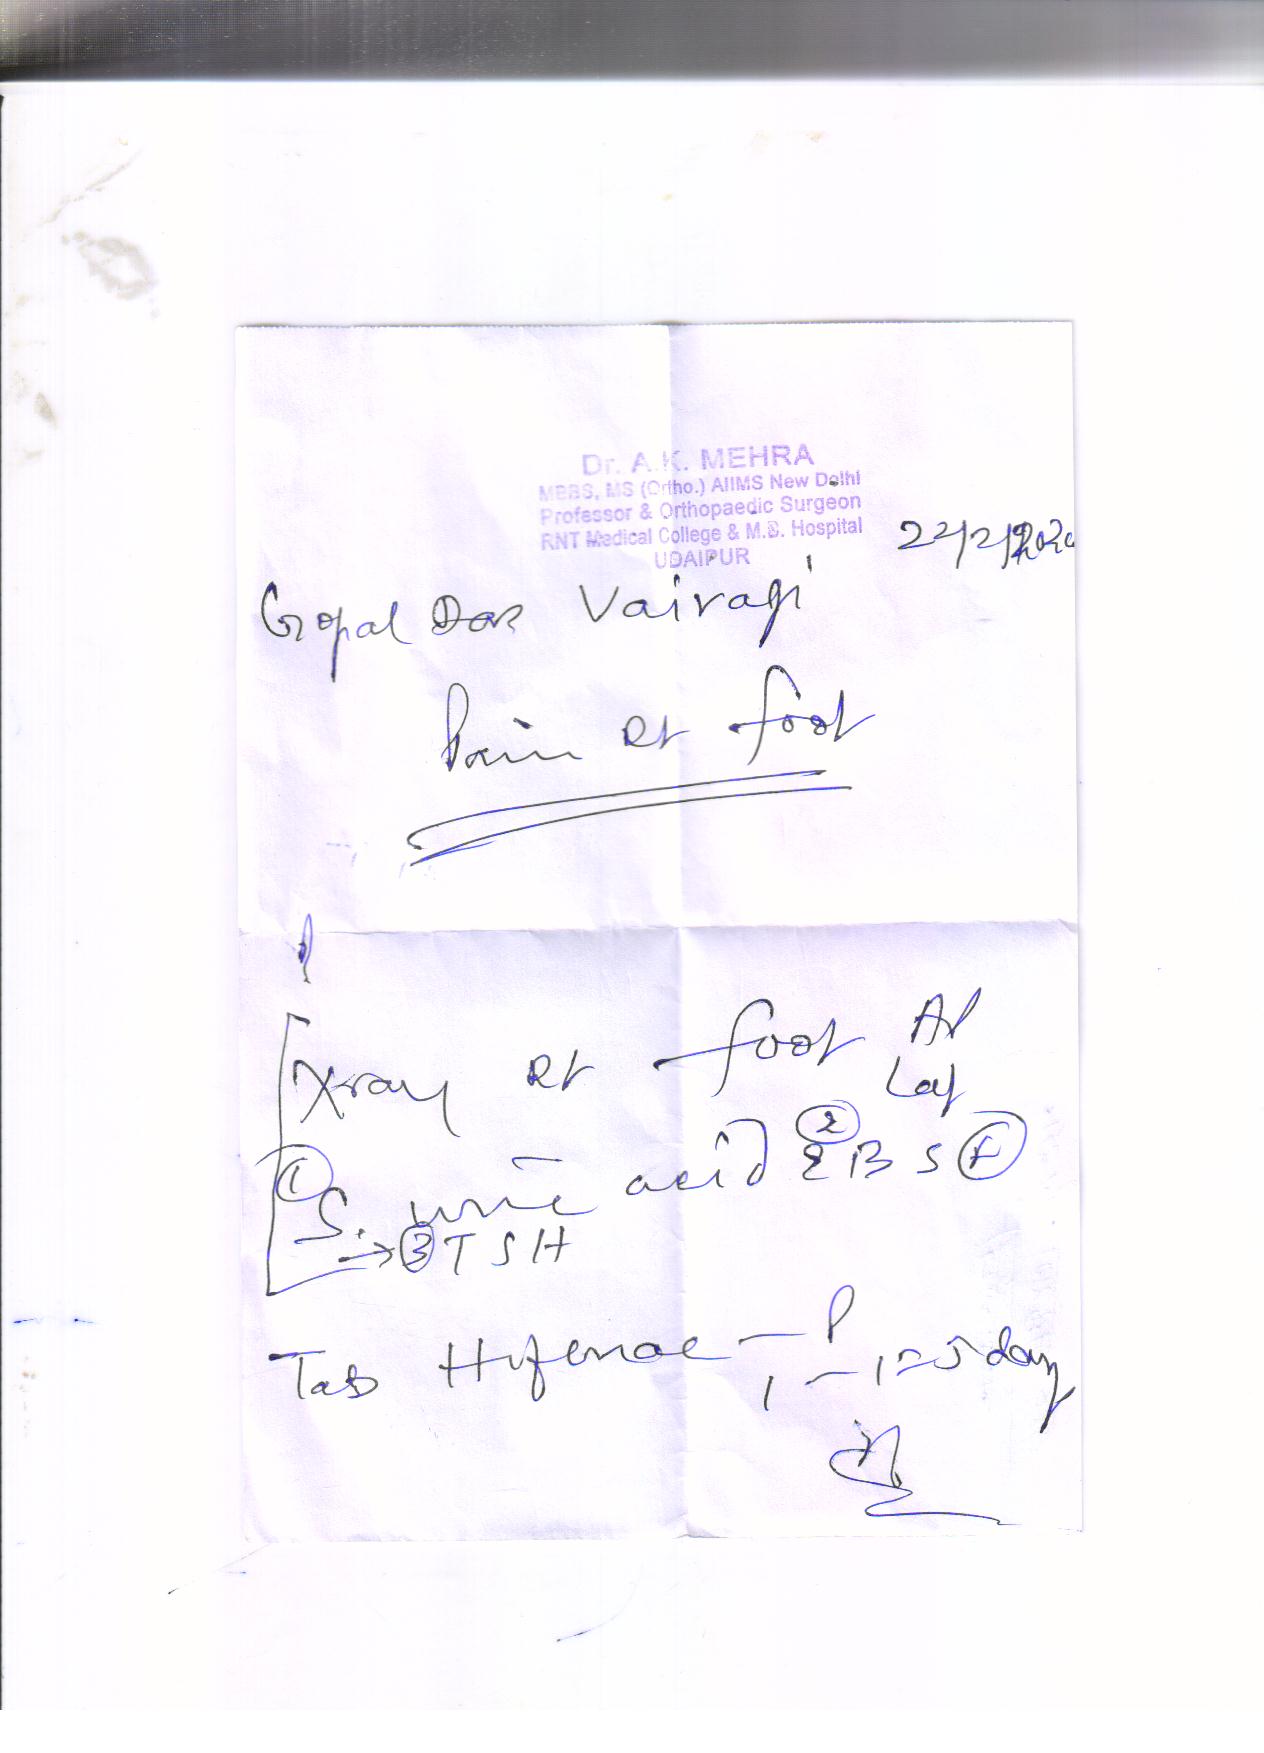 Dr. A.K. MEHRA
MBBS, MS (Ortho.) AIIMS New Delhi
Professor & Orthopaedic Surgeon
RNT Medical College & M.B. Hospital
UDAIPUR
22/2/2020
Gopal Das Vairagi
Pain Rt foot
Xray Rt foot AP
Lat
① S. uric acid ② BS (F)
→ ③ TSH
Tab Hifenac - P
1 - 1 = 5 day